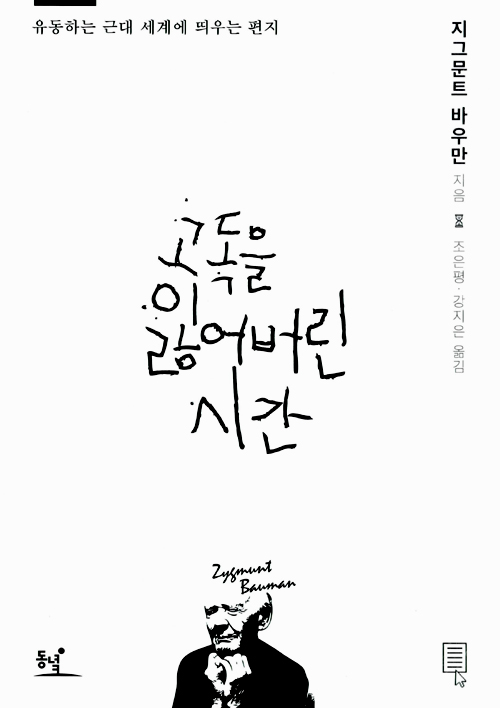 유동하는 근대 세계에 띄우는 편지
지그문트 바우만 지음 조은평·강지은 옮김
고독을
잃어버린
시간
Zygmunt
Bauman
동녘